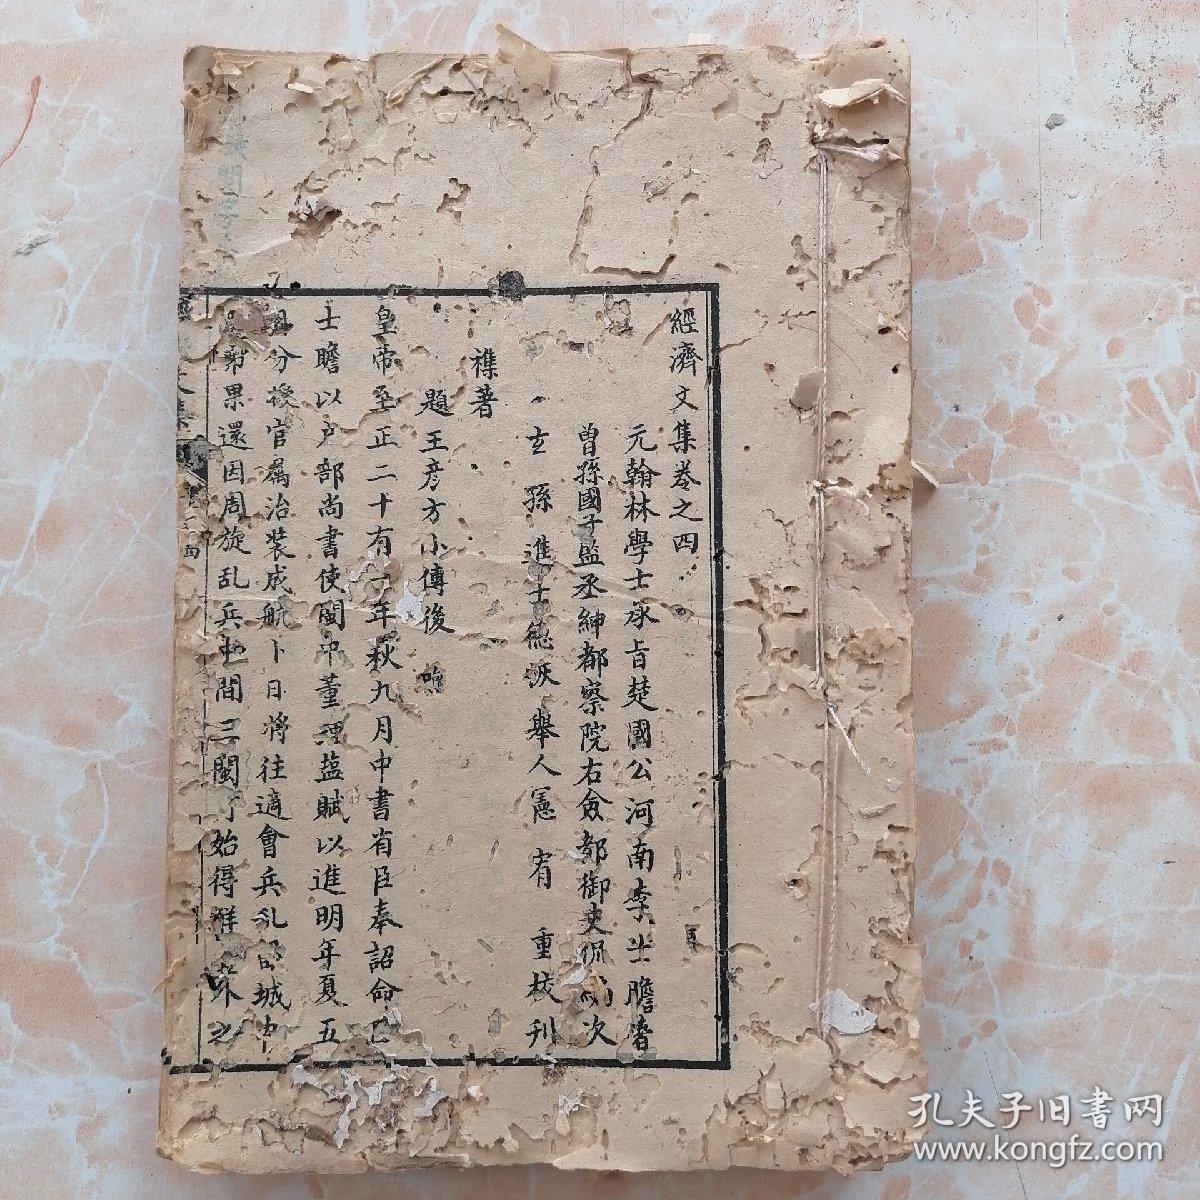 經濟文集卷之四
元翰林學士承旨楚國公河南李士瞻著
曾孫國子監丞紳都察院右僉都御史侃次
玄孫進士德恢舉人憲宥重校刊
襍著
題王彥方小傳後
皇帝至正二十有一年秋九月中書省臣奉詔命
士瞻以戶部尚書使閩中董理鹽賦以進明年夏五
分授官屬治裝成航卜日將往適會兵乱城中
果還因周旋乱兵中間三閱始得
孔夫子旧書网
www.kongfz.com